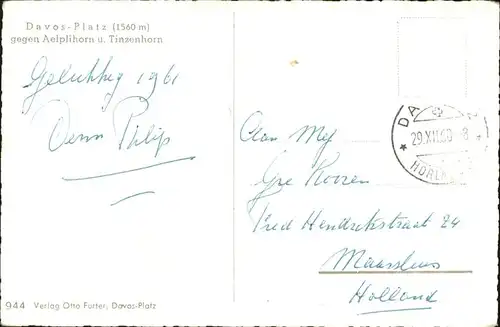 Davos-Platz (1560 m)
gegen Aelplihorn u. Tinzenhorn
Gelukkig 1961
Philip
Aan Mej
Gré Kooren
Fred Hendrikstraat 24
Maassluis
Holland
DA
29.XII.60-8
944 Verlag Otto Furter, Davos-Platz